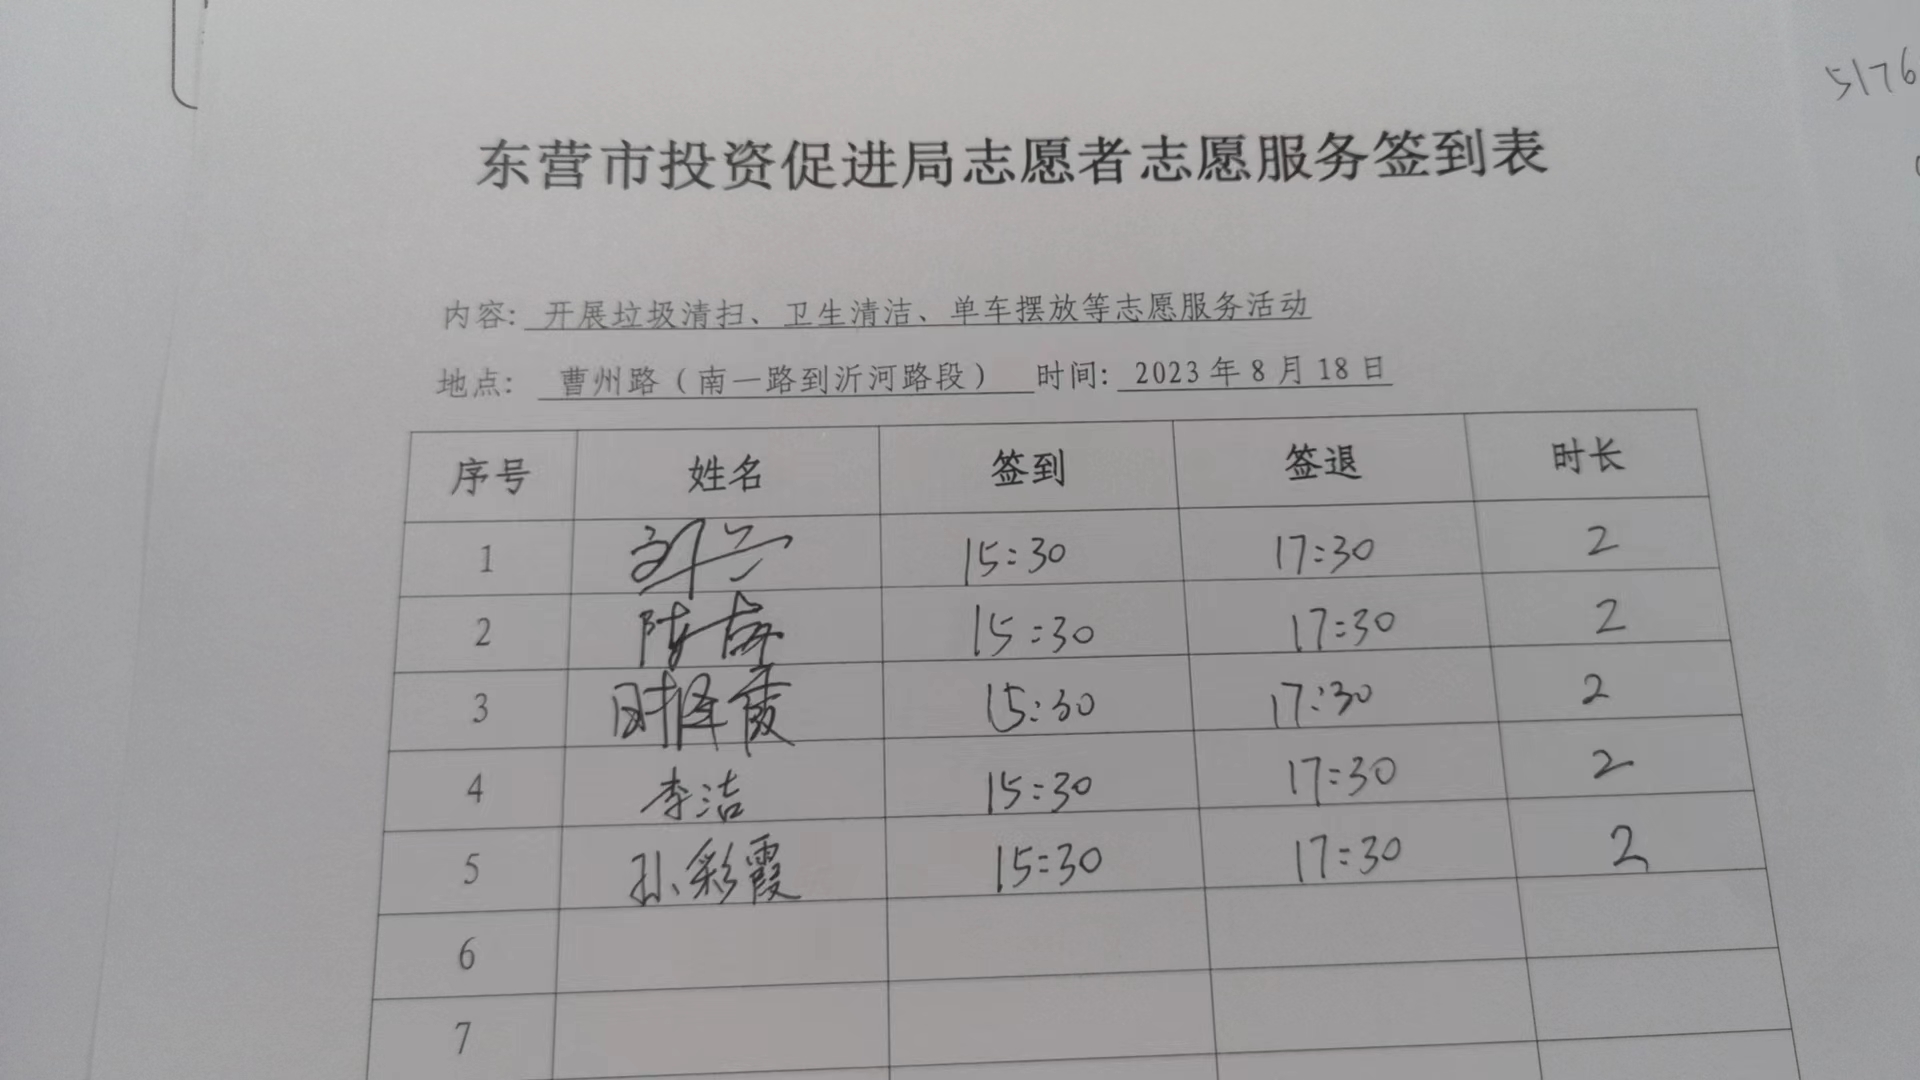 5176
东营市投资促进局志愿者志愿服务签到表
内容: 开展垃圾清扫、卫生清洁、单车摆放等志愿服务活动
地点: 曹州路（南一路到沂河路段） 时间: 2023年8月18日
序号 姓名 签到 签退 时长
1 15:30 17:30 2
2 15:30 17:30 2
3 15:30 17:30 2
4 李洁 15:30 17:30 2
5 孙彩霞 15:30 17:30 2
6
7